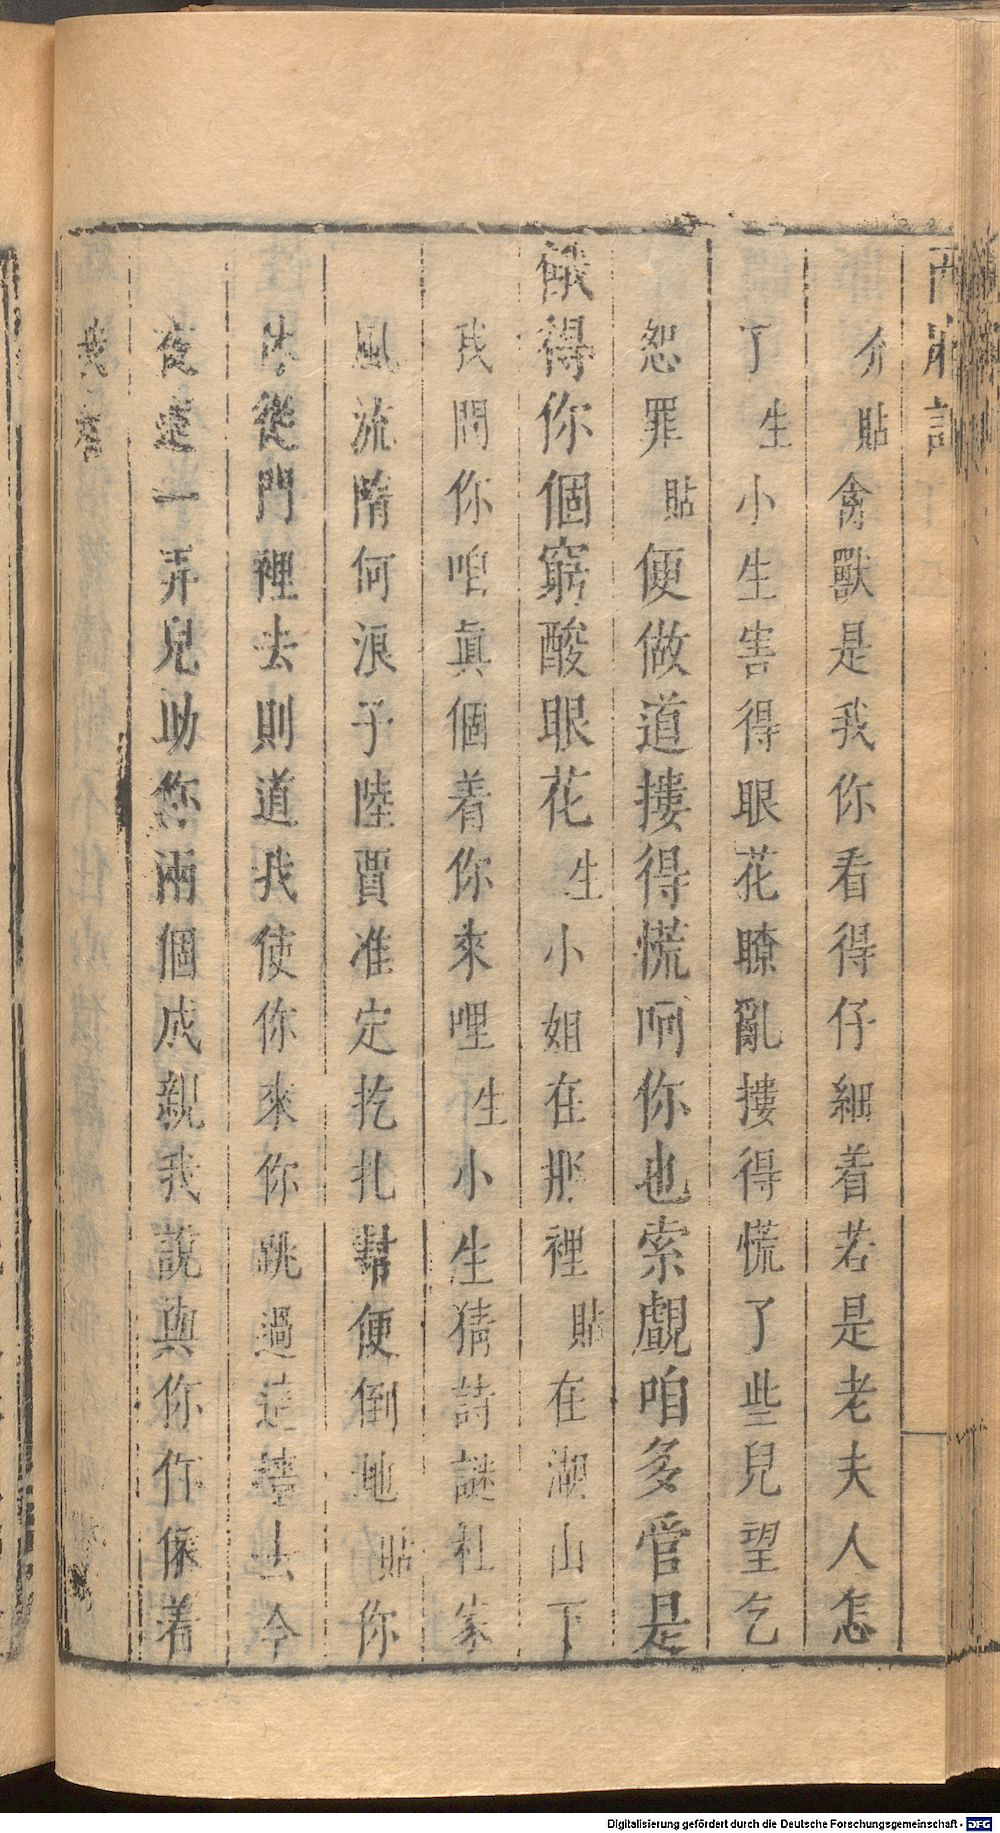 西廂記
介貼禽獸是我你看得仔細着若是老夫人怎
了生小生害得眼花瞭亂摟得慌了些兒望乞
恕罪貼便做道摟得慌呵你也索覷咱多管是
餓得你個窮酸眼花生小姐在那裡貼在湖山下
我問你咱眞個着你來哩生小生猜詩謎社家
風流隋何浪子陸賈准定扢扎幫便倒地貼你
休從門裡去則道我使你來你跳過這墻去今
夜這一弄兒助你兩個成親我說與你你依着
我者
Digitalisierung gefördert durch die Deutsche Forschungsgemeinschaft - DFG